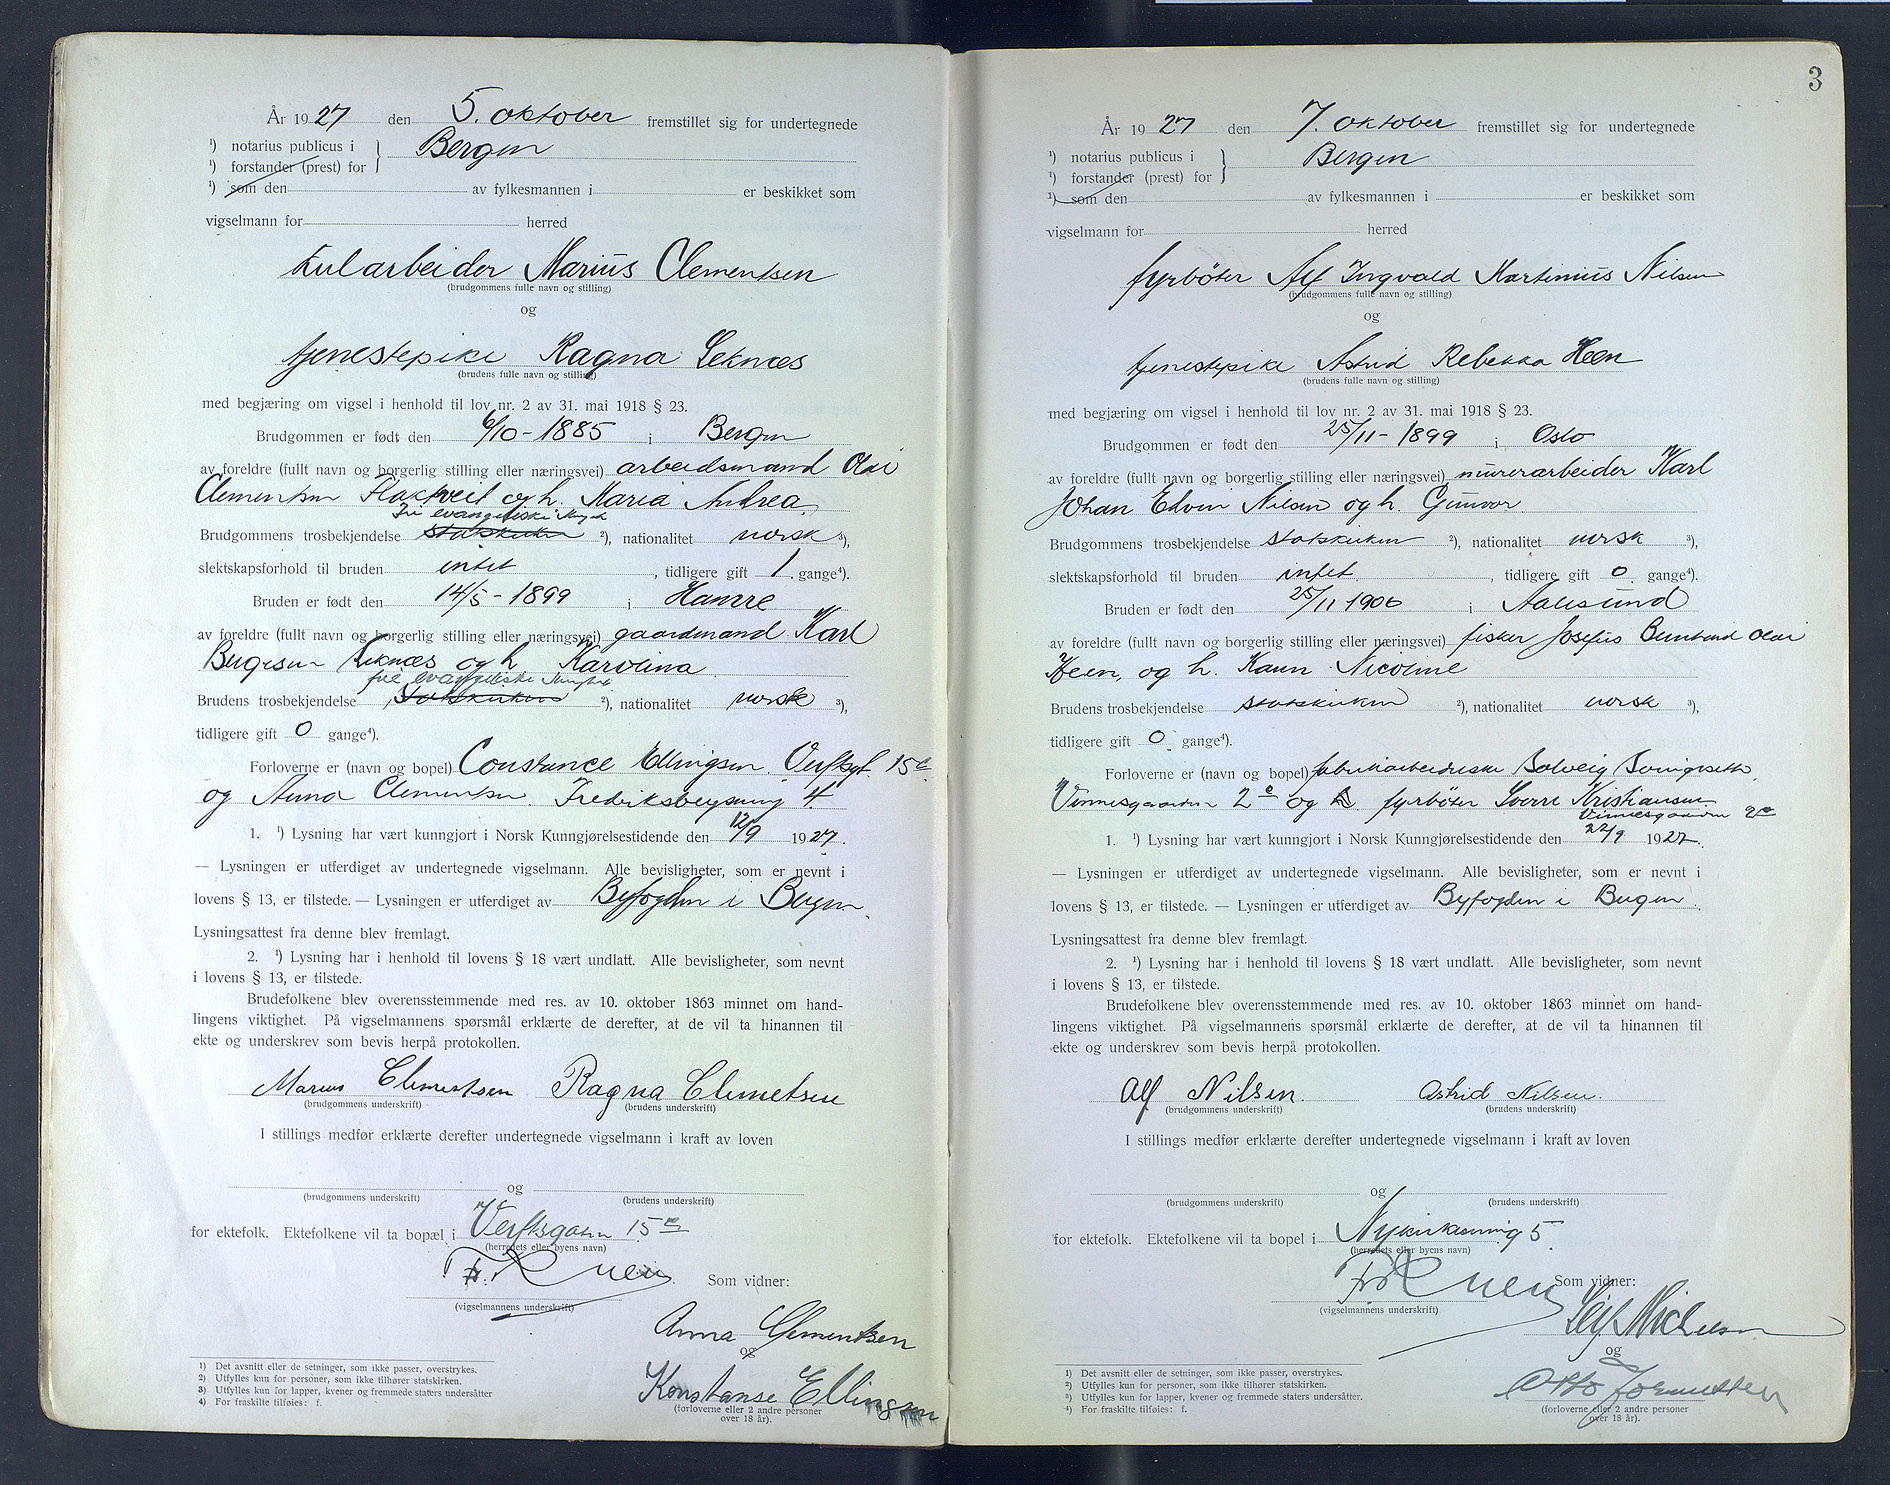 År 1927 den 5. oktober fremstillet sig for undertegnede
¹) notarius publicus i } Bergen
¹) forstander (prest) for
¹) som den av fylkesmannen i er beskikket som
vigselmann for herred
Marius Clementsen
(brudgommens fulle navn og stilling)
og
tjenestepike Ragna Leknæs
(brudens fulle navn og stilling)
med begjæring om vigsel i henhold til lov nr. 2 av 31. mai 1918 § 23.
Brudgommen er født den 6/10 - 1885 i Bergen
av foreldre (fullt navn og borgerlig stilling eller næringsvei) arbeidsmand Olai
Clementsen Flaktveit og h. Maria Andrea
fri evangeliske
Brudgommens trosbekjendelse statskirken ²), nationalitet norsk ³),
slektskapsforhold til bruden intet, tidligere gift 1. gange⁴).
Bruden er født den 14/5 - 1899 i Hamre
av foreldre (fullt navn og borgerlig stilling eller næringsvei) gaardmand Karl
Birgesen Leknæs og h. Karolina
fri evangeliske
Brudens trosbekjendelse Statskirken ²), nationalitet norsk ³),
tidligere gift 0 gange⁴).
Forloverne er (navn og bopel) Constance Ellingsen. Verftsgt. 15 c
og Anna Clementsen. Fredriksbergsmug 4.
1. ¹) Lysning har vært kunngjort i Norsk Kunngjørelsestidende den 12/9 1927.
— Lysningen er utferdiget av undertegnede vigselmann. Alle bevisligheter, som er nevnt i
lovens § 13, er tilstede. — Lysningen er utferdiget av Byfogden i Bergen.
Lysningsattest fra denne blev fremlagt.
2. ¹) Lysning har i henhold til lovens § 18 vært undlatt. Alle bevisligheter, som nevnt
i lovens § 13, er tilstede.
Brudefolkene blev overensstemmende med res. av 10. oktober 1863 minnet om hand-
lingens viktighet. På vigselmannens spørsmål erklærte de derefter, at de vil ta hinannen til
ekte og underskrev som bevis herpå protokollen.
Marius Clementsen Ragna Clemetsen
(brudgommens underskrift) (brudens underskrift)
I stillings medfør erklærte derefter undertegnede vigselmann i kraft av loven
og
(brudgommens underskrift) (brudens underskrift)
for ektefolk. Ektefolkene vil ta bopæl i Verftsgaten 15 c
(herredets eller byens navn)
Som vidner:
(vigselmannens underskrift)
Anna Clementsen
og
Konstanse Ellingsen
(forloverne eller 2 andre personer
over 18 år).
¹) Det avsnitt eller de setninger, som ikke passer, overstrykes.
²) Utfylles kun for personer, som ikke tilhører statskirken.
³) Utfylles kun for lapper, kvener og fremmede staters undersåtter
⁴) For fraskilte tilføies: f.
3
År 1927 den 7. oktober fremstillet sig for undertegnede
¹) notarius publicus i } Bergen
¹) forstander (prest) for
¹) som den av fylkesmannen i er beskikket som
vigselmann for herred
fyrbøter Alf Ingvald Martinius Nilsen
(brudgommens fulle navn og stilling)
og
tjenestepike Astrid Rebekka Heen
(brudens fulle navn og stilling)
med begjæring om vigsel i henhold til lov nr. 2 av 31. mai 1918 § 23.
Brudgommen er født den 25/11 - 1899 i Oslo
av foreldre (fullt navn og borgerlig stilling eller næringsvei) murerarbeider Karl
Johan Edvin Nilsen og h. Gunvor
Brudgommens trosbekjendelse statskirken ²), nationalitet norsk ³),
slektskapsforhold til bruden intet, tidligere gift 0. gange⁴).
Bruden er født den 25/11 1906 i Aalesund
av foreldre (fullt navn og borgerlig stilling eller næringsvei) fisker Josefus Olai
Heen, og h. Karen Nicoline
Brudens trosbekjendelse statskirken ²), nationalitet norsk ³),
tidligere gift 0. gange⁴).
Forloverne er (navn og bopel) fabrikarbeiderske Solveig
Vinnesgaarden 2 c og fyrbøter Sverre Kristiansen
Vinnesgaarden 2 c
1. ¹) Lysning har vært kunngjort i Norsk Kunngjørelsestidende den 22/9 1927.
— Lysningen er utferdiget av undertegnede vigselmann. Alle bevisligheter, som er nevnt i
lovens § 13, er tilstede. — Lysningen er utferdiget av Byfogden i Bergen.
Lysningsattest fra denne blev fremlagt.
2. ¹) Lysning har i henhold til lovens § 18 vært undlatt. Alle bevisligheter, som nevnt
i lovens § 13, er tilstede.
Brudefolkene blev overensstemmende med res. av 10. oktober 1863 minnet om hand-
lingens viktighet. På vigselmannens spørsmål erklærte de derefter, at de vil ta hinannen til
ekte og underskrev som bevis herpå protokollen.
Alf Nilsen. Astrid Nilsen.
(brudgommens underskrift) (brudens underskrift)
I stillings medfør erklærte derefter undertegnede vigselmann i kraft av loven
og
(brudgommens underskrift) (brudens underskrift)
for ektefolk. Ektefolkene vil ta bopel i Nykirkesmug 5
(herredets eller byens navn)
Som vidner:
(vigselmannens underskrift)
Leif Michelsen
og
Otto
(forloverne eller 2 andre personer
over 18 år).
¹) Det avsnitt eller de setninger, som ikke passer, overstrykes.
²) Utfylles kun for personer, som ikke tilhører statskirken.
³) Utfylles kun for lapper, kvener og fremmede staters undersåtter.
⁴) For fraskilte tilføies: f.